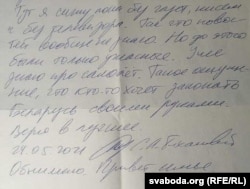 Тут я сижу пока без газет, писем
и без телевизора. Так что новос-
тей вообще не знаю. Но до этого
были только ужасные. Уже
знаю про самолет. Такое ощуще-
ние, что кто-то хочет закопать
Беларусь своими руками.
Верю в лучшее
29.05.2021
Обнимаю. Привет семье
svaboda.org (RFE/RL)